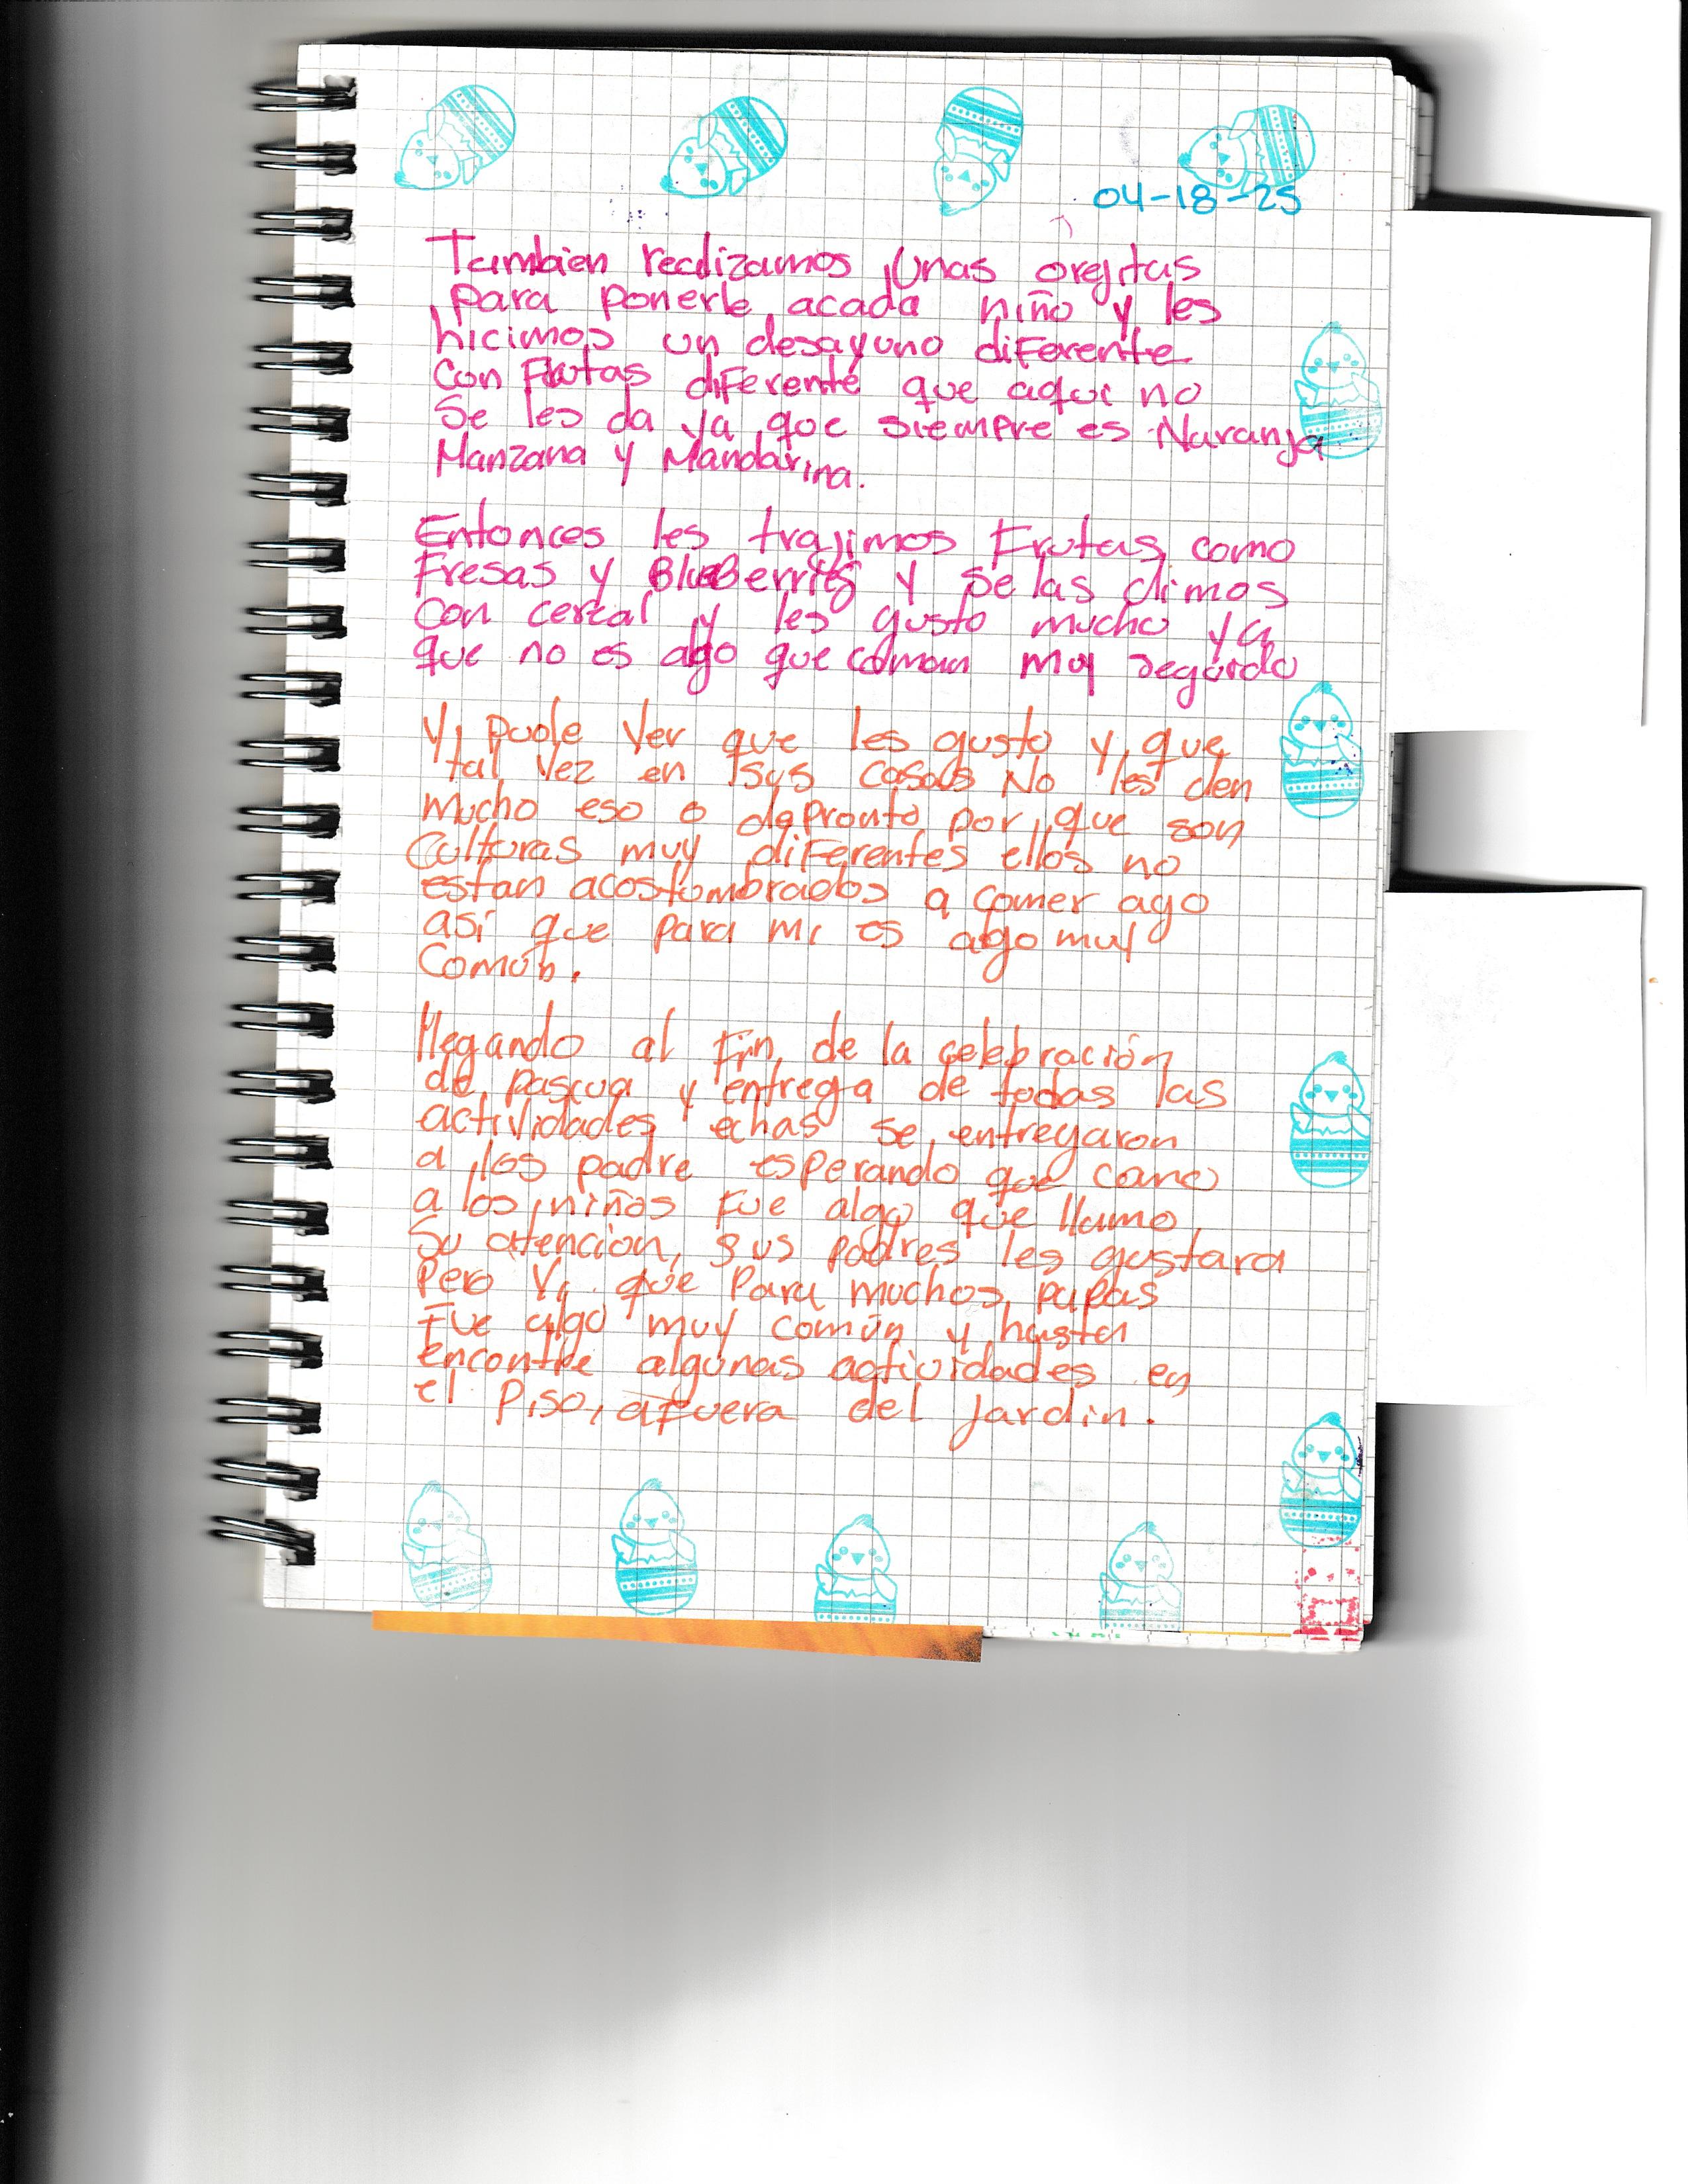 04-18-25
Tambien realizamos unas orejitas
para ponerle acada niño y les
hicimos un desayuno diferente
con Frutas diferente que aqui no
Se les da ya que siempre es Naranja
Manzana y Mandarina.
Entonces les trajimos Frutas como
Fresas y BlueBerries y se las dimos
con cereal y les gusto mucho ya
que no es algo que coman muy seguido
Y pude ver que les gusto y que
tal vez en sus casas No les den
mucho eso o depronto por que son
Culturas muy diferentes ellos no
estan acostumbrados a comer ago
así que para mi es algo muy
Común.
llegando al Fin de la celebración
de pascua y entrega de todas las
actividades echas se entregaron
a los padre esperando que como
a los niños Fue algo que llamo
Su atencion, sus padres les gustara
Pero Vi que Para muchos papas
Fue algo muy común y hasta
encontre algunas actividades en
el Piso, afuera del jardin.